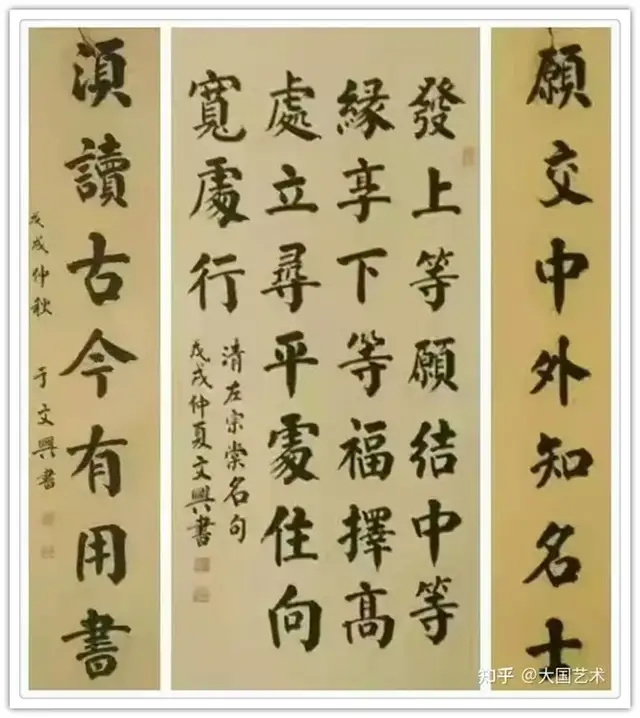 願交中外知名士
發上等願結中等
緣享下等福擇高
處立尋平處住向
寬處行
清左宗棠名句
戊戌仲夏文興書
湏讀古今有用書
戊戌仲秋 于文興書
知乎 @大国艺术